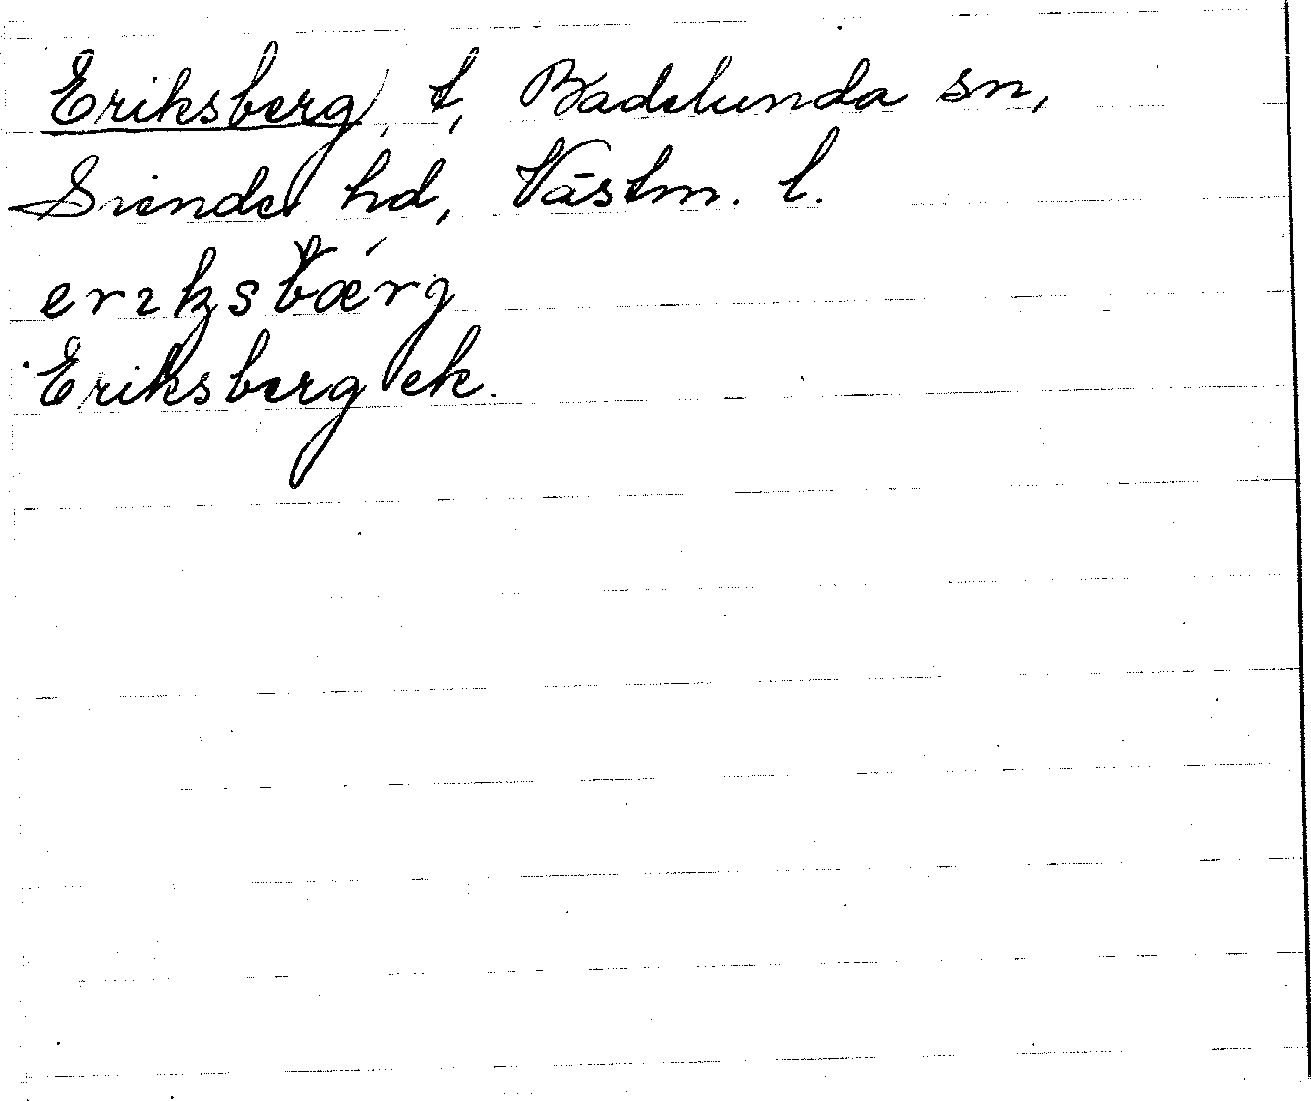 Eriksberg, t, Badelunda sn,
Siende hd, Västm. l.
erıksbǽrg
Eriksberg ek.